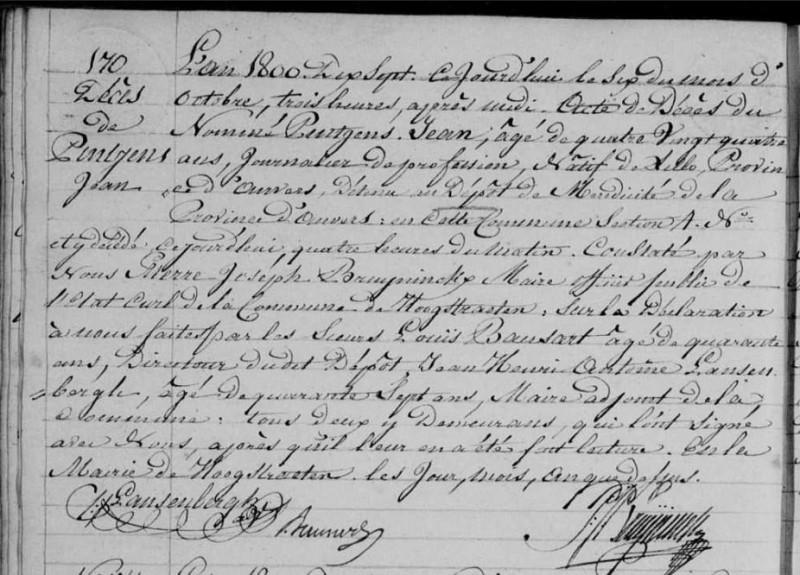 170
Décès
de
Pintgens
Jean
L'an 1800 Dix Sept. Ce Jourd'hui le six du mois d'
Octobre, trois heures, après midi. Acte de Décès du
Nommé Pintgens. Jean, âgé de quatre Vingt quatre
ans, Journalier de profession, Natif de Lillo, Provin
ce d'Anvers, Détenu au Dépôt de Mendicité de la
Province d'Anvers: en Cette Commune Section A. No
et y décédé ce jourd'hui quatre heures du Matin. Constaté par
Nous Pierre Joseph Bruyninckx Maire officier public de
l'Etat Civil de la Commune de Hoogstraeten, sur la Déclaration
à nous faite par les Sieurs Louis Bausart âgé de quarante
ans, Directeur dudit Dépôt, Jean Henri Antoine Lansen
bergh, âgé de quarante Sept ans, Maire adjoint de la
Commune: tous deux y Demeurans, qui l'ont signé
avec Nous, après qu'il leur en a été fait lecture. En la
Mairie de Hoogstraeten les Jour, mois, an que dessus.
Lansenbergh